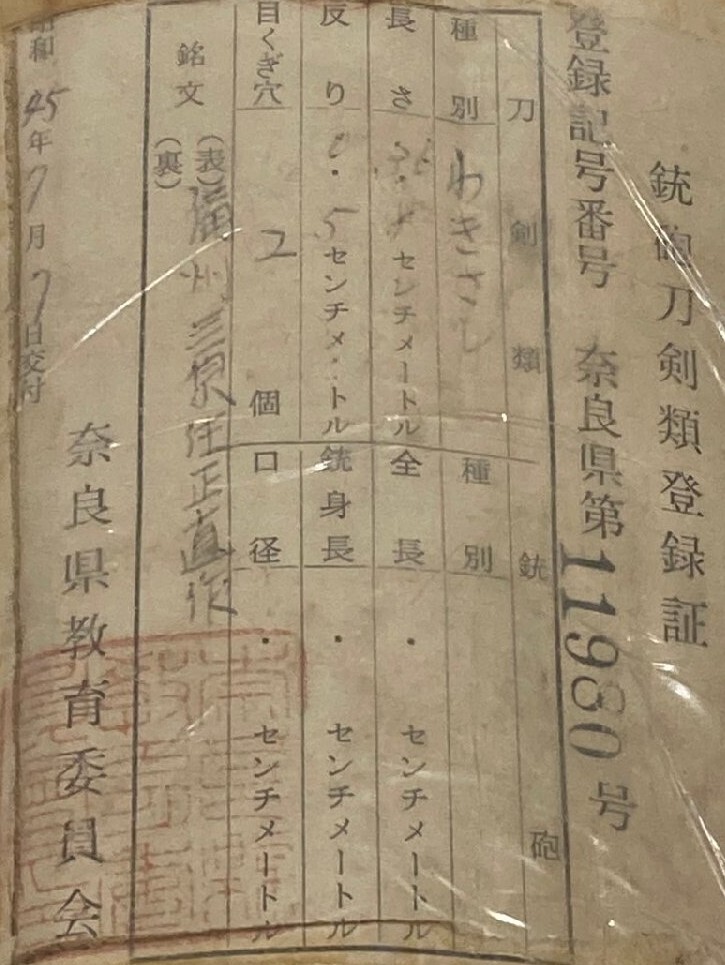 銃砲刀剣類登録証
登録記号番号 奈良県第11980号
刀剣類
銃砲
種別 わきさし
種別
長さ センチメートル
全長 ・ センチメートル
反り ・5センチメートル
銃身長 ・ センチメートル
目くぎ穴 2個
口径 ・ センチメートル
銘文 (表) 州三原住正直作
(裏)
昭和45年7月7日交付
奈良県教育委員会